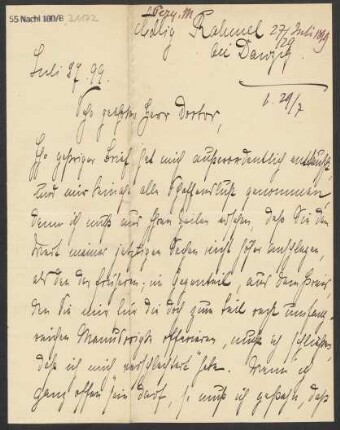 55 Nachl 100/B
Adlig Rahmel 27/Juli 1899
bei Danzig
Juli 27. 99.
b. 29/7
Sehr geehrter Herr Doctor,
Ihr gestriger Brief hat mich außerordentlich enttäuscht
und mir beinahe alle Schaffenslust genommen,
denn ich muß aus Ihren Zeilen ersehen, daß Sie den
Wert meiner jetzigen Sachen nicht höher anschlagen,
als den der früheren; im Gegenteil, aus dem Preis,
den Sie mir für die doch zum Teil recht umfang-
reichen Manuscripte offerieren, muß ich schließen,
daß ich mich verschlechtert habe. Wenn ich
ganz offen sein darf, so muß ich gestehen, daß